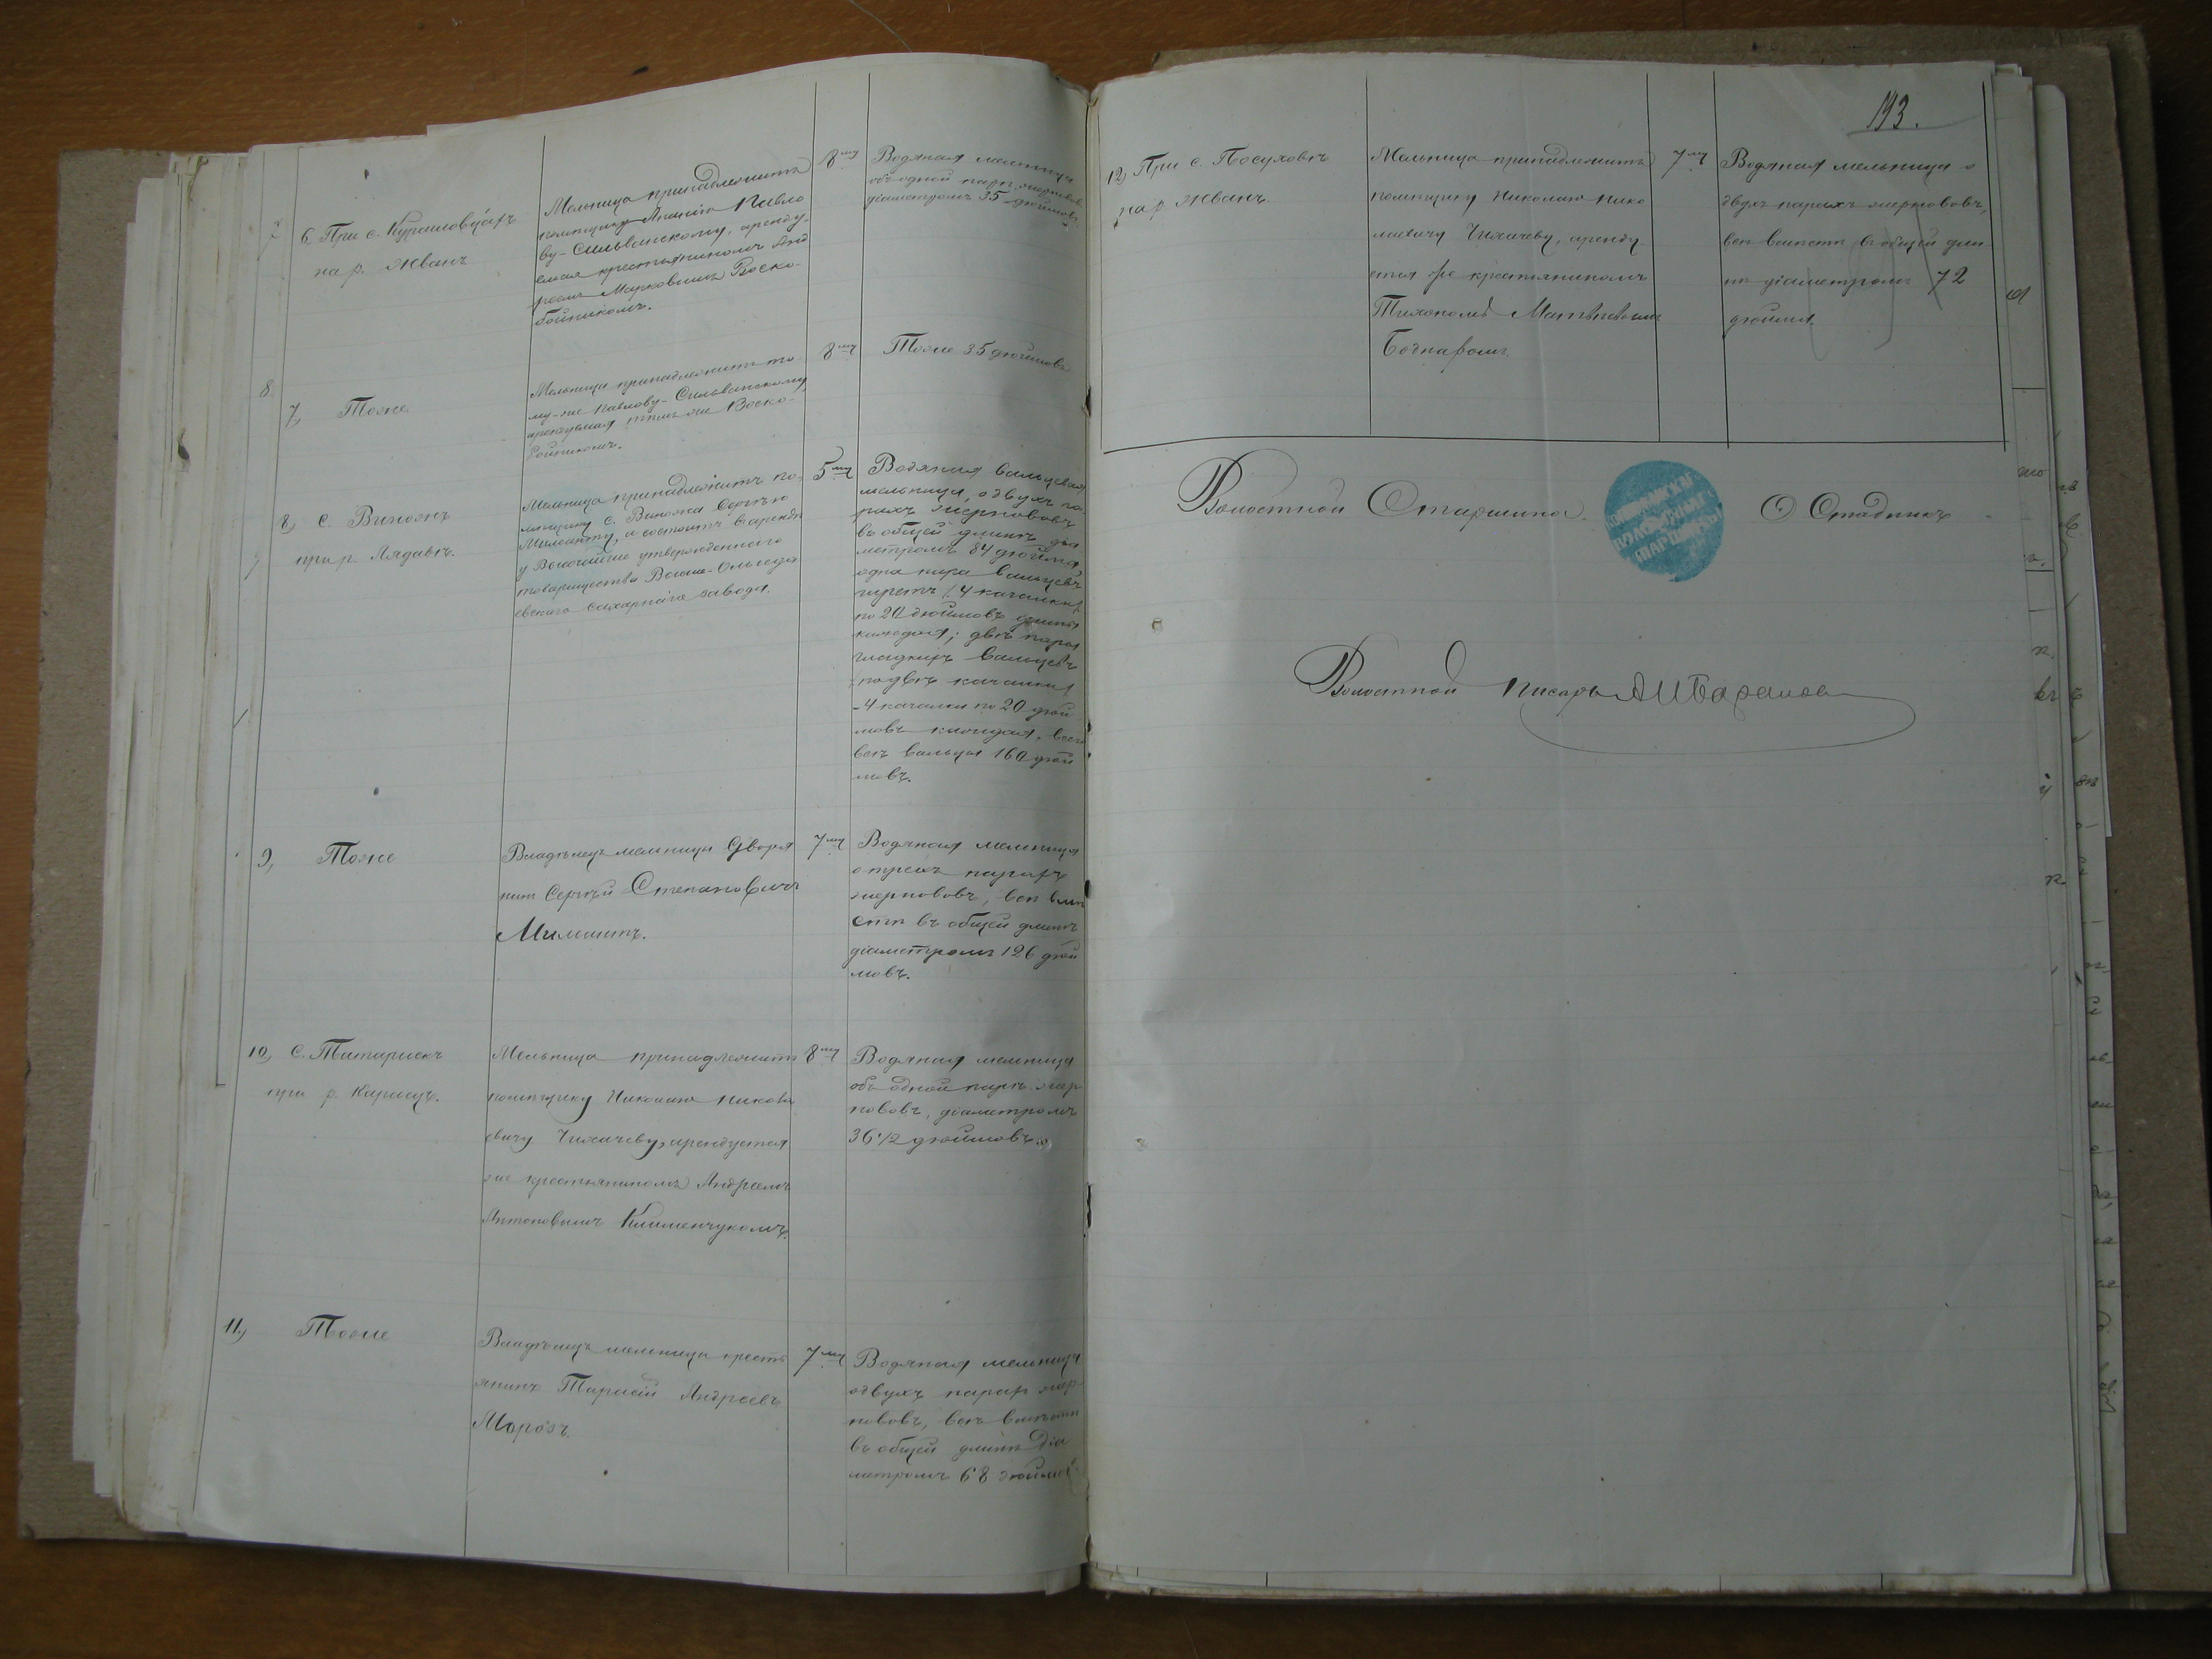 6. При с. Курашовцахъ
на р. Жванъ
Мельница принадлежитъ
помѣщику Павло
ву-Сильванскому, аренду
емая крестьяниномъ Анд
реемъ Марковымъ Воско-
бойникомъ.
8му
Водяная мельница
объ одной парѣ жернововъ
діаметромъ 35 дюймовъ
8
7, Тоже
Мельница принадлежитъ то
му-же Павлову-Сильванскому
арендуемая тѣмъ же Воско-
бойникомъ.
8му
Тоже 35 дюймовъ
8, с. Виножъ
при р. Лядавѣ.
Мельница принадлежитъ по-
мѣщику с. Виножа Сергѣю
и состоитъ въ арендѣ
у Высочайше утвержденнаго
товарищества
евскаго сахарнаго завода.
5му
Водяная вальцевая
мельница, о двухъ па-
рахъ жернововъ
въ общей длинѣ діа
метромъ 84 дюйма,
одна пара вальцевъ
4 качалки
по 20 дюймовъ длины
каждая; двѣ пары
гладкихъ вальцевъ
по двѣ качалки
-4 качалки по 20 дюй
мовъ каждая, всего
всѣ вальцы 160 дюй
мовъ.
9, Тоже
Владѣлецъ мельницы Дворя
нинъ Сергѣй Степановичъ
7му
Водяная мельница
о трехъ парахъ
жернововъ, всѣ вмѣ
стѣ въ общей длинѣ
діаметромъ 126 дюй
мовъ.
10, С. Татариски
при р. Караецъ.
Мельница принадлежитъ
помѣщику Николаю Никола
евичу Чихачеву, арендуется
же крестьяниномъ Андреемъ
Антоновымъ Клименчукомъ.
8му
Водяная мельница
объ одной парѣ жер
нововъ, діаметромъ
36 1/2 дюймовъ.
11, Тоже
Владѣлецъ мельницы кресть
янинъ Тарасій Андреевъ
Морозъ.
7му
Водяная мельница
о двухъ парах жер-
нововъ, всѣ вмѣстѣ
въ общей длинѣ діа
метромъ 68 дюймовъ
193.
12, При с. Посуховѣ
на р. Жванъ.
Мельница принадлежитъ
помѣщику Николаю Нико
лаевичу Чихачеву, аренду
ется же крестьяниномъ
Тихономъ Матвѣевымъ
Боднаромъ.
7му
Водяная мельница о
двухъ парахъ жернововъ,
всѣ вмѣстѣ въ общей дли
нѣ діаметромъ 72
дюйма.
Волостной Старшина
О Стадникъ
Волостной писарь